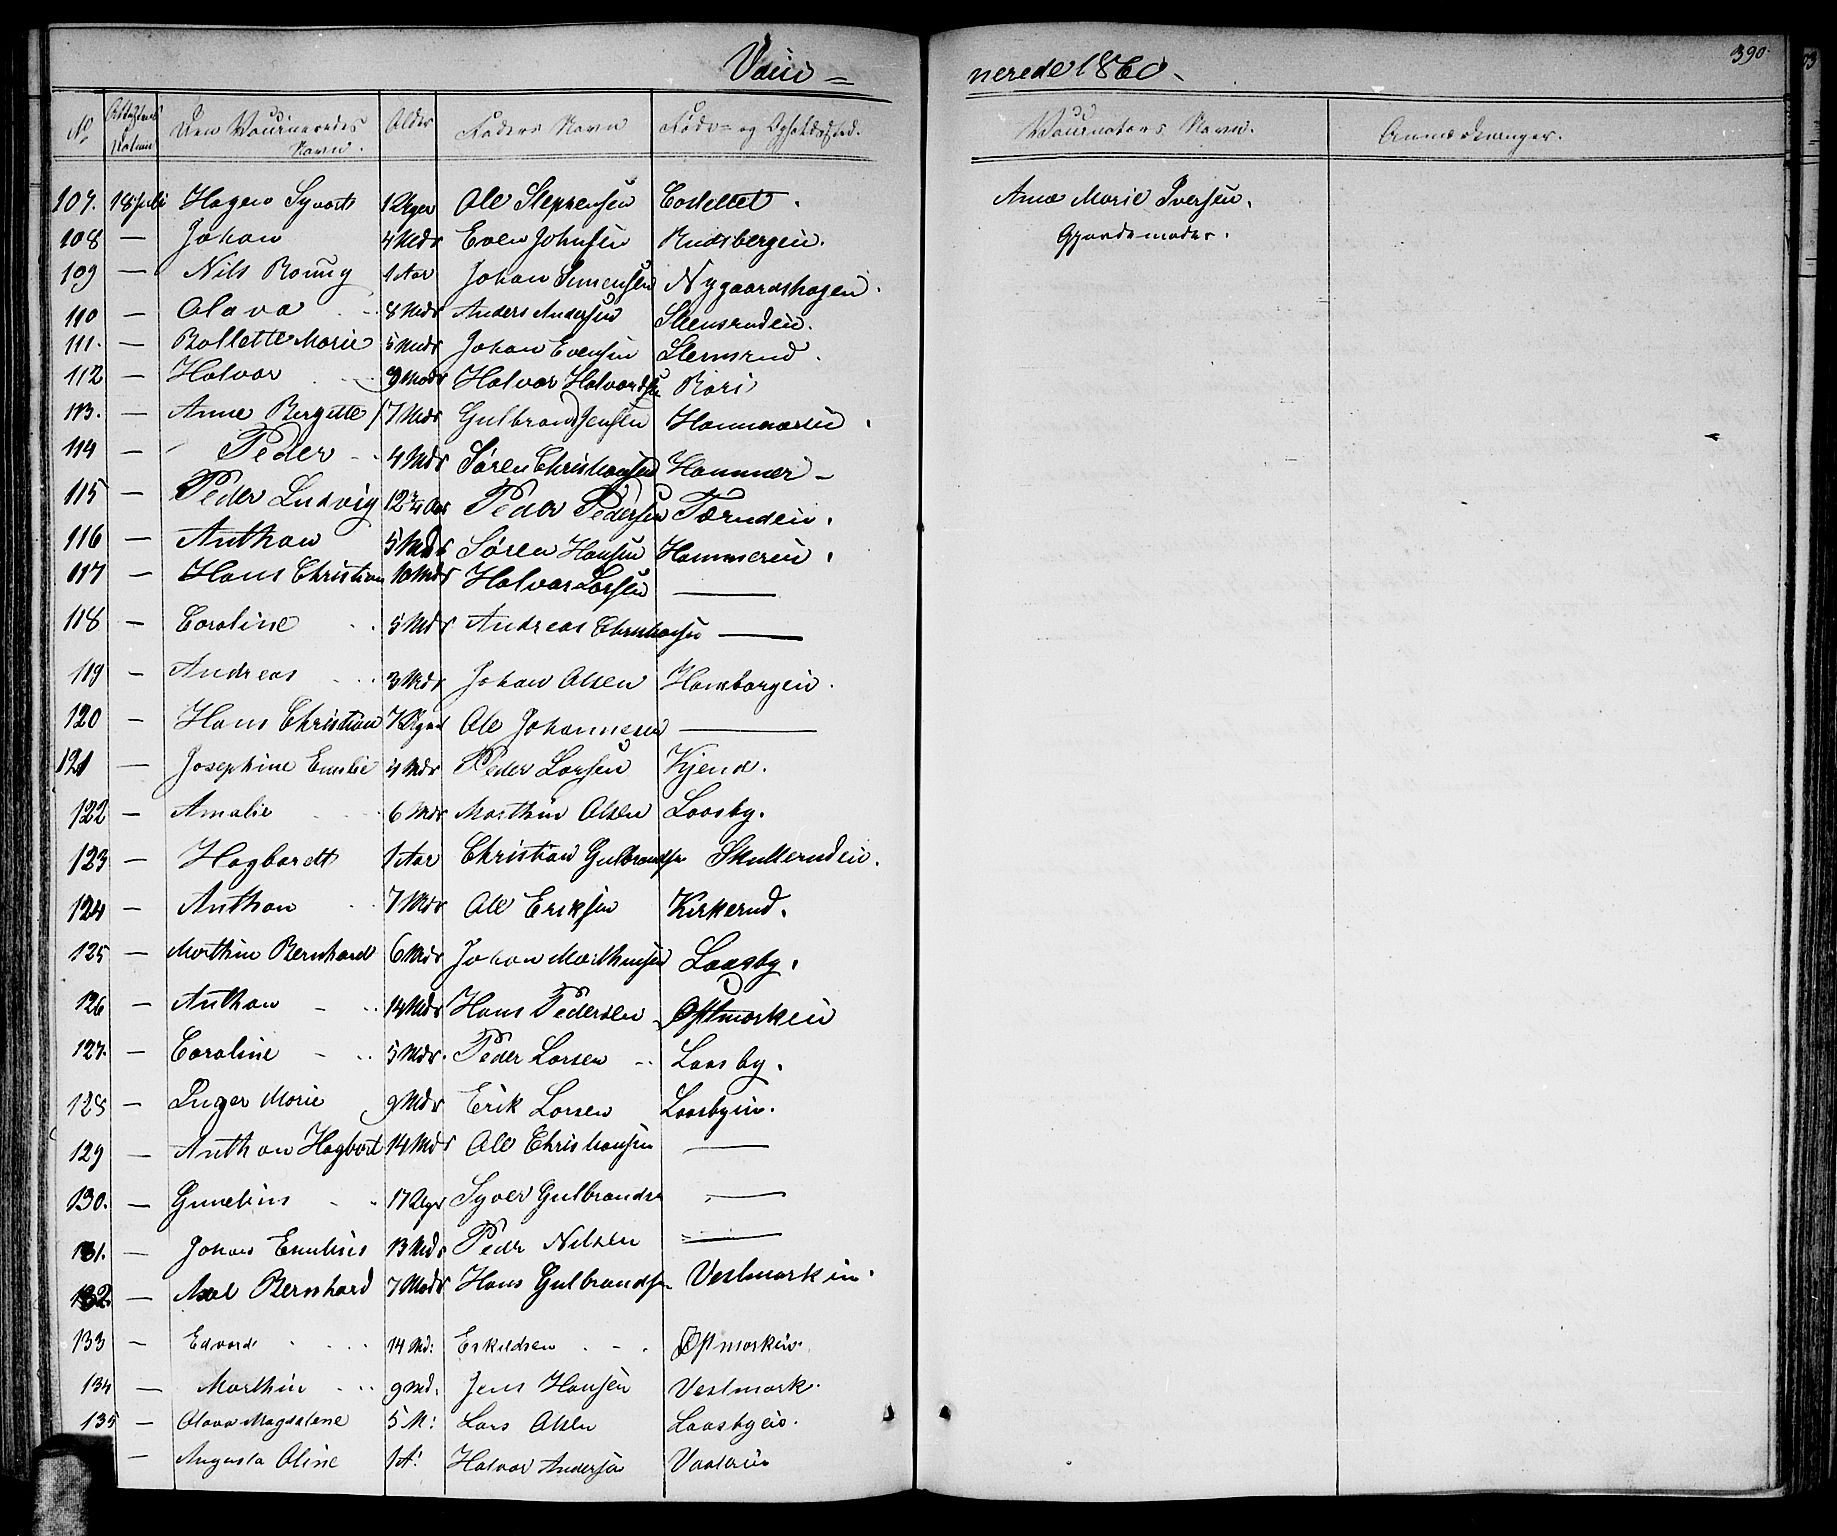 Vacci-
nerede 1860.
390.
No
Attestens Datum
Den Vaccineredes Navn.
Alder
Faders Navn
Føde- og Opholdssted.
Vaccinators Navn.
Anmærkninger.
107. 18 Juli Hagen Syvert 12 Uger Ole Stephensen Costellet. Anne Marie Iversen,
108 — Johan 4 Mdr Even Johnsen Rudsbergen. Gjordemoder.
109 — Nils Ronny 1 Aar Johan Simensen Nygaardshagen.
110 — Olava 8 Mdr Anders Andersen Stensruden.
111. — Bollette Marie 5 Mdr Johan Evensen Stensrud.
112 — Halvor 9 Mdr Halvor Halvordsen
113. — Anne Bergitte 7 Mdr Gulbrand Jensen Hammeren.
114 — Peder 4 Mdr Søren Christiansen Hammer -
115 — Peder Ludvig 12 3/4 Aar Peder Pedersen Tæruden.
116 — Anthon 5 Mdr Søren Hansen Hammeren.
117 — Hans Christian 10 Mdr Halvor Larsen —
118 — Caroline 5 Mdr Andreas Christiansen —
119 — Andreas 3 Mdr Johan Olsen Hansborgen.
120 — Hans Christian 7 Uger Ole Johannesen —
121 — Josephine Emilie 4 Mdr Peder Larsen Kjend.
122 — Amalie 6 Mdr Marthin Olsen Laasby.
123 — Hagbardt 1 Aar Christian Gulbrandsen Skulleruden.
124 — Anthon 7 Mdr Ole Eriksen Kirkerud.
125 — Marthin Bernhard 6 Mdr Johan Marthinsen Laasby.
126 — Anthon 14 Mdr Hans Pedersen Østmarken
127. — Caroline 5 Mdr. Peder Larsen Laasby.
128 — Inger Marie 9 Mdr Erik Larsen Laasbyen.
129 — Anthon Hagbart 14 Mdr Ole Christiansen —
130. — Gunelius 17 Uger Syver Gulbrandsen —
131. — Johan Emilius 13 Mdr Peder Nilsen —
132. — Axel Bernhard 7 Mdr Hans Gulbrandsen Vestmarken.
133 — Edvard 14 Md: Eskildsen Østmarken.
134 — Marthin 9 Md. Jens Hansen Vestmark.
135 — Olava Magdalene 5 M: Lars Olsen Laasbyen.
— Augusta Oline 1 A: Halvor Andersen